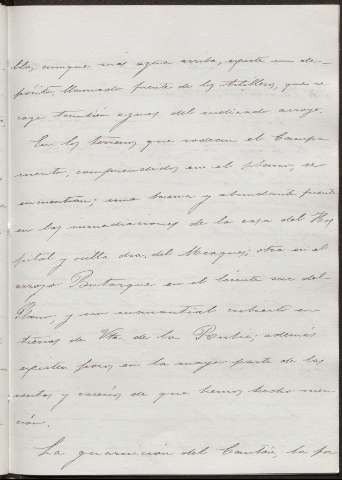 llo, aunque más agua arriba, existe un de-
pósito llamado fuente de los Artilleros, que re-
coge tambien aguas del indicado arroyo.
En los terrenos que rodean el Campa-
mento, comprendidos en el plano, se
encuentran; una buena y abundante fuente
en las inmediaciones de la casa del Hos-
pital y orilla dra. del Meaques; otra en el
arroyo Butarque en el límite sur del
Plano, y un manantial cubierto en
tierras de Vta. de la Rubia; además
existen pozos en la mayor parte de las
ventas y caseríos de que hemos hecho men-
ción.
La guarnición del Cantón, la po-